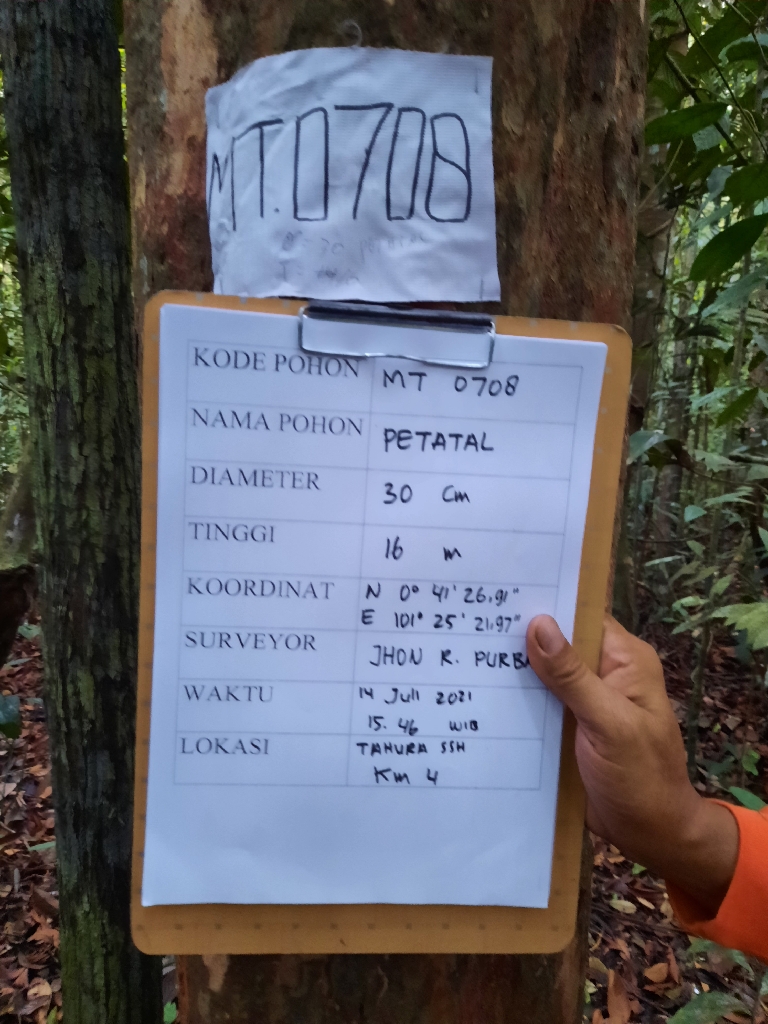 MT.0708
KODE POHON MT 0708
NAMA POHON PETATAL
DIAMETER 30 Cm
TINGGI 16 m
KOORDINAT N 0° 41' 26,91"
E 101° 25' 21,97"
SURVEYOR JHON R. PURBA
WAKTU 14 Juli 2021
15.46 WIB
LOKASI TAHURA SSH
Km 4